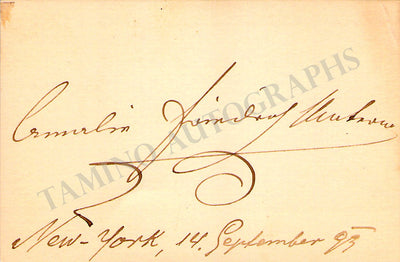 Amalie Friedrich Materna
New-York, 14. September 93
TAMINO AUTOGRAPHS